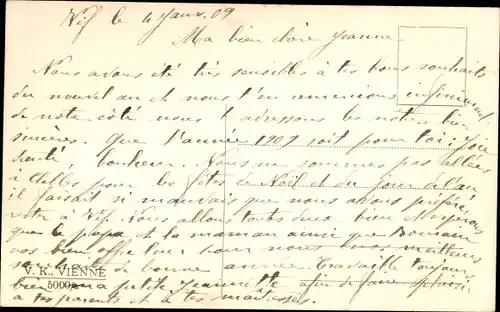 Vif le 4 Janv. 09
Ma bien chère Jeanne
Nous avons été très sensibles à tes bons souhaits
du nouvel an et nous t'en remercions infiniment
de notre côté nous t'adressons les nôtres bien
sincères. Que l'année 1909 soit pour toi: joie
santé, bonheur. Nous ne sommes pas allées
à pour les fêtes de Noël et du jour de l'an
il faisait si mauvais que nous avons préféré
rester à Vif. Nous allons tous deux bien espérons
que le papa et la maman ainsi que Romain
vos bien offre leur pour nous nos meilleurs
souhaits de bonne année. Travaille toujours
bien ma petite Jeannette afin de faire plaisir
à tes parents et à tes maîtresses.
V. K., VIENNE
5000